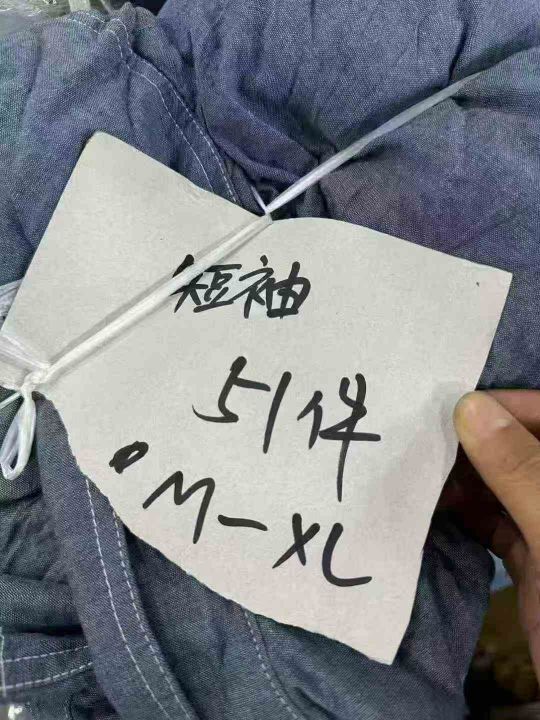 短袖
51件
M-XL